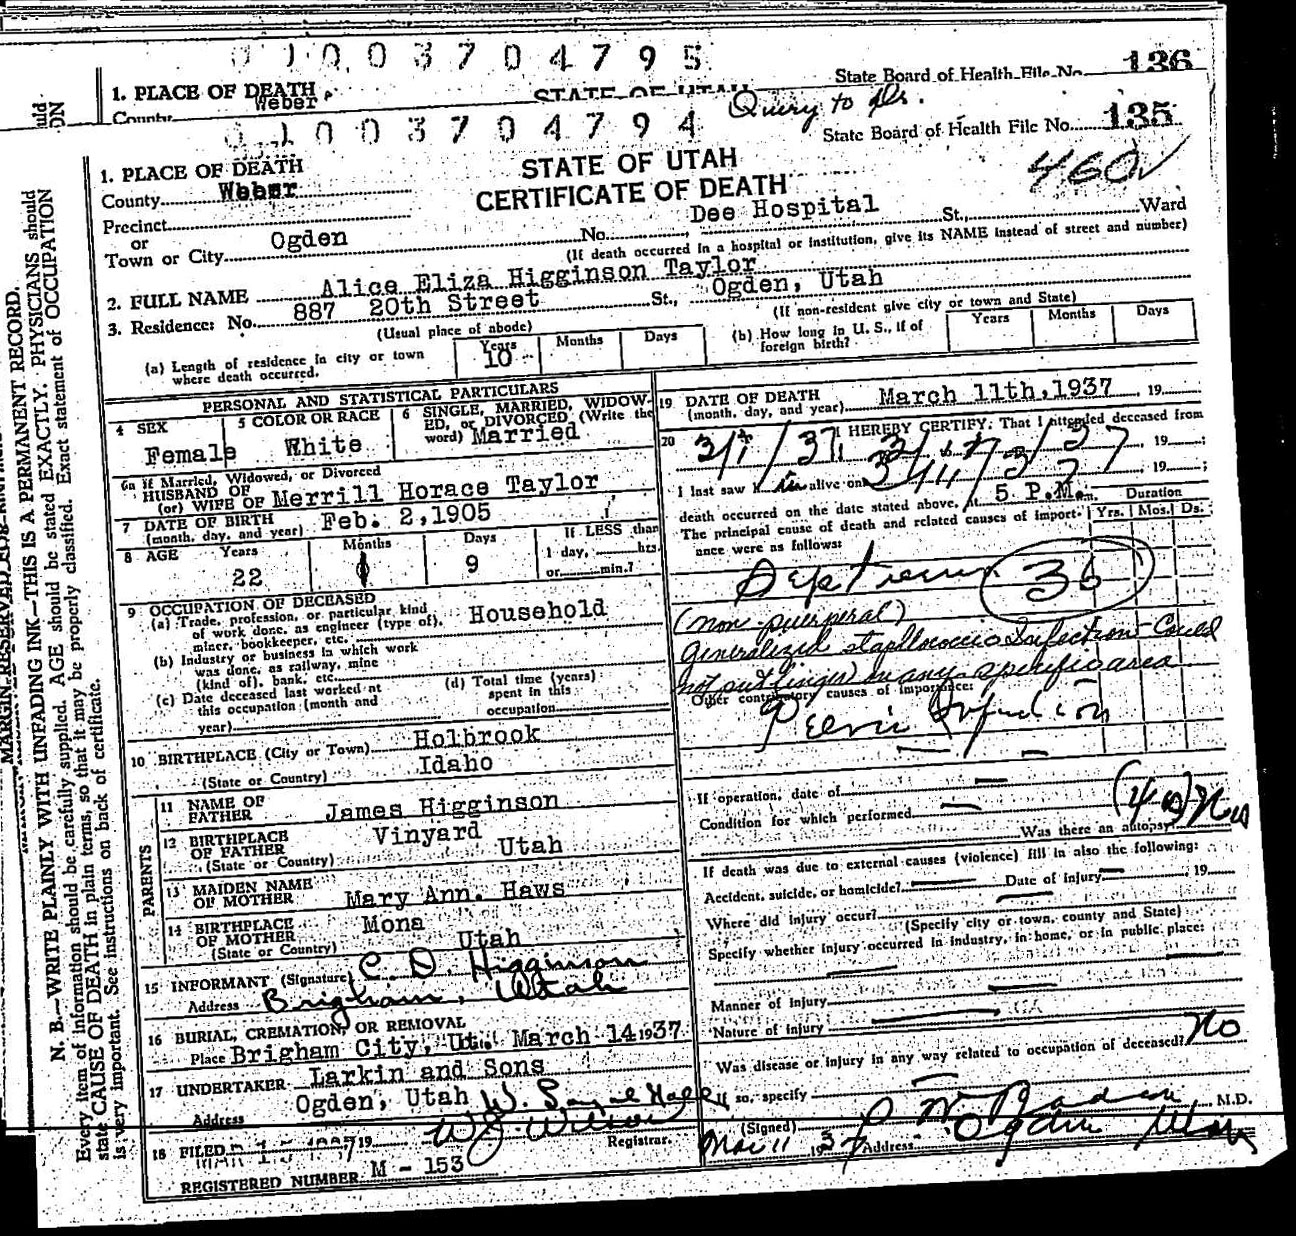 01003704795
State Board of Health File No. 136
1. PLACE OF DEATH
STATE OF UTAH
County Weber
Query to Dr.
01003704794
State Board of Health File No. 135
1. PLACE OF DEATH
STATE OF UTAH
460
County Weber
CERTIFICATE OF DEATH
Precinct
Dee Hospital
or
Town or City Ogden No. St., Ward
(If death occurred in a hospital or institution, give its NAME instead of street and number)
2. FULL NAME Alice Eliza Higginson Taylor
3. Residence: No. 887 20th Street St., Ogden, Utah
(Usual place of abode) (If non-resident give city or town and State)
(a) Length of residence in city or town where death occurred. Years 10 Months Days
(b) How long in U. S., if of foreign birth? Years Months Days
PERSONAL AND STATISTICAL PARTICULARS
4 SEX Female
5 COLOR OR RACE White
6 SINGLE, MARRIED, WIDOWED, or DIVORCED (Write the word) Married
6a If Married, Widowed, or Divorced
HUSBAND OF
(or) WIFE OF Merrill Horace Taylor
7 DATE OF BIRTH
(month, day, and year) Feb. 2, 1905
8 AGE Years 22 Months 1 Days 9
If LESS than
1 day, hrs.
or min.?
9 OCCUPATION OF DECEASED
(a) Trade, profession, or particular kind of work done, as engineer (type of), miner, bookkeeper, etc. Household
(b) Industry or business in which work was done, as railway, mine (kind of), bank, etc.
(c) Date deceased last worked at this occupation (month and year)
(d) Total time (years) spent in this occupation
10 BIRTHPLACE (City or Town) Holbrook
(State or Country) Idaho
PARENTS
11 NAME OF FATHER James Higginson
12 BIRTHPLACE OF FATHER Vinyard
(State or Country) Utah
13 MAIDEN NAME OF MOTHER Mary Ann. Haws
14 BIRTHPLACE OF MOTHER Mona
(State or Country) Utah
15 INFORMANT (Signature) C. D. Higginson
Address Brigham, Utah
16 BURIAL, CREMATION, OR REMOVAL
Place Brigham City, Ut. March 14 1937
17 UNDERTAKER Larkin and Sons
Address Ogden, Utah
18 FILED MAR 15 1937 19
W J Wilson
Registrar.
REGISTERED NUMBER M - 153
19 DATE OF DEATH
(month, day, and year) March 11th, 1937 19
20 I HEREBY CERTIFY, That I attended deceased from
, 19 ;
I last saw h alive on , 19 ;
death occurred on the date stated above, at 5 P.M. m.
The principal cause of death and related causes of importance were as follows:
Duration
Yrs. Mos. Ds.
Septicemia 36
(non-puerperal)
Generalized Infection - Could
not put finger on any specific area
Other contributory causes of importance:
Pelvic Infection
If operation, date of
Condition for which performed
Was there an autopsy? No
If death was due to external causes (violence) fill in also the following:
Accident, suicide, or homicide? Date of injury 19
Where did injury occur?
(Specify city or town, county and State)
Specify whether injury occurred in industry, in home, or in public place:
Manner of Injury
Nature of Injury
Was disease or injury in any way related to occupation of deceased? No
If so, specify
(Signed) M.D.
Mar 11 1937 Address Ogden Utah
MARGIN RESERVED FOR BINDING
N. B.—WRITE PLAINLY WITH UNFADING INK—THIS IS A PERMANENT RECORD.
Every item of information should be carefully supplied. AGE should be stated EXACTLY. PHYSICIANS should
state CAUSE OF DEATH in plain terms, so that it may be properly classified. Exact statement of OCCUPATION
is very important. See instructions on back of certificate.